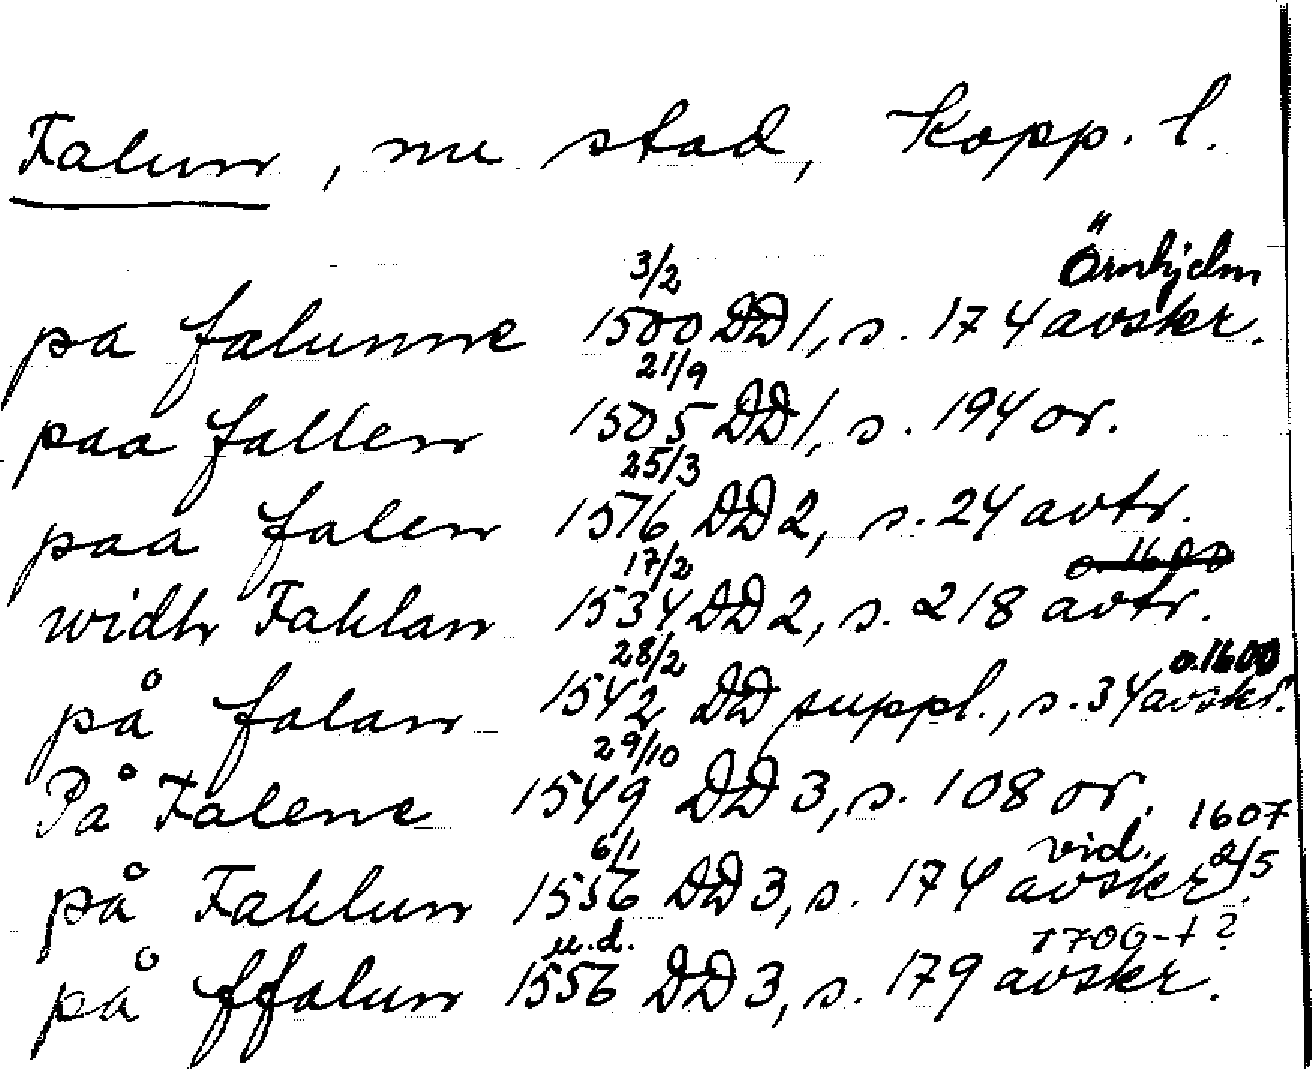 Falun, nu stad, Kopp. l.
Örnhjelm
3/2
pa falunne 1500 DD 1, s. 174 avskr.
21/9
paa fallen 1505 DD 1, s. 194 or.
25/3
paa falen 1516 DD 2, s. 24 avtr.
17/2 o. 1600
widh Fahlan 1534 DD 2, s. 218 avtr.
28/2 o. 1600
på falan 1542 DD suppl., s. 34 avskr.
29/10
På Falene 1549 DD 3, s. 108 or.
6/1 vid. 1607 2/5
på Fahlun 1556 DD 3, s. 174 avskr.
u.d. 1700-t?
på ffalun 1556 DD 3, s. 179 avskr.